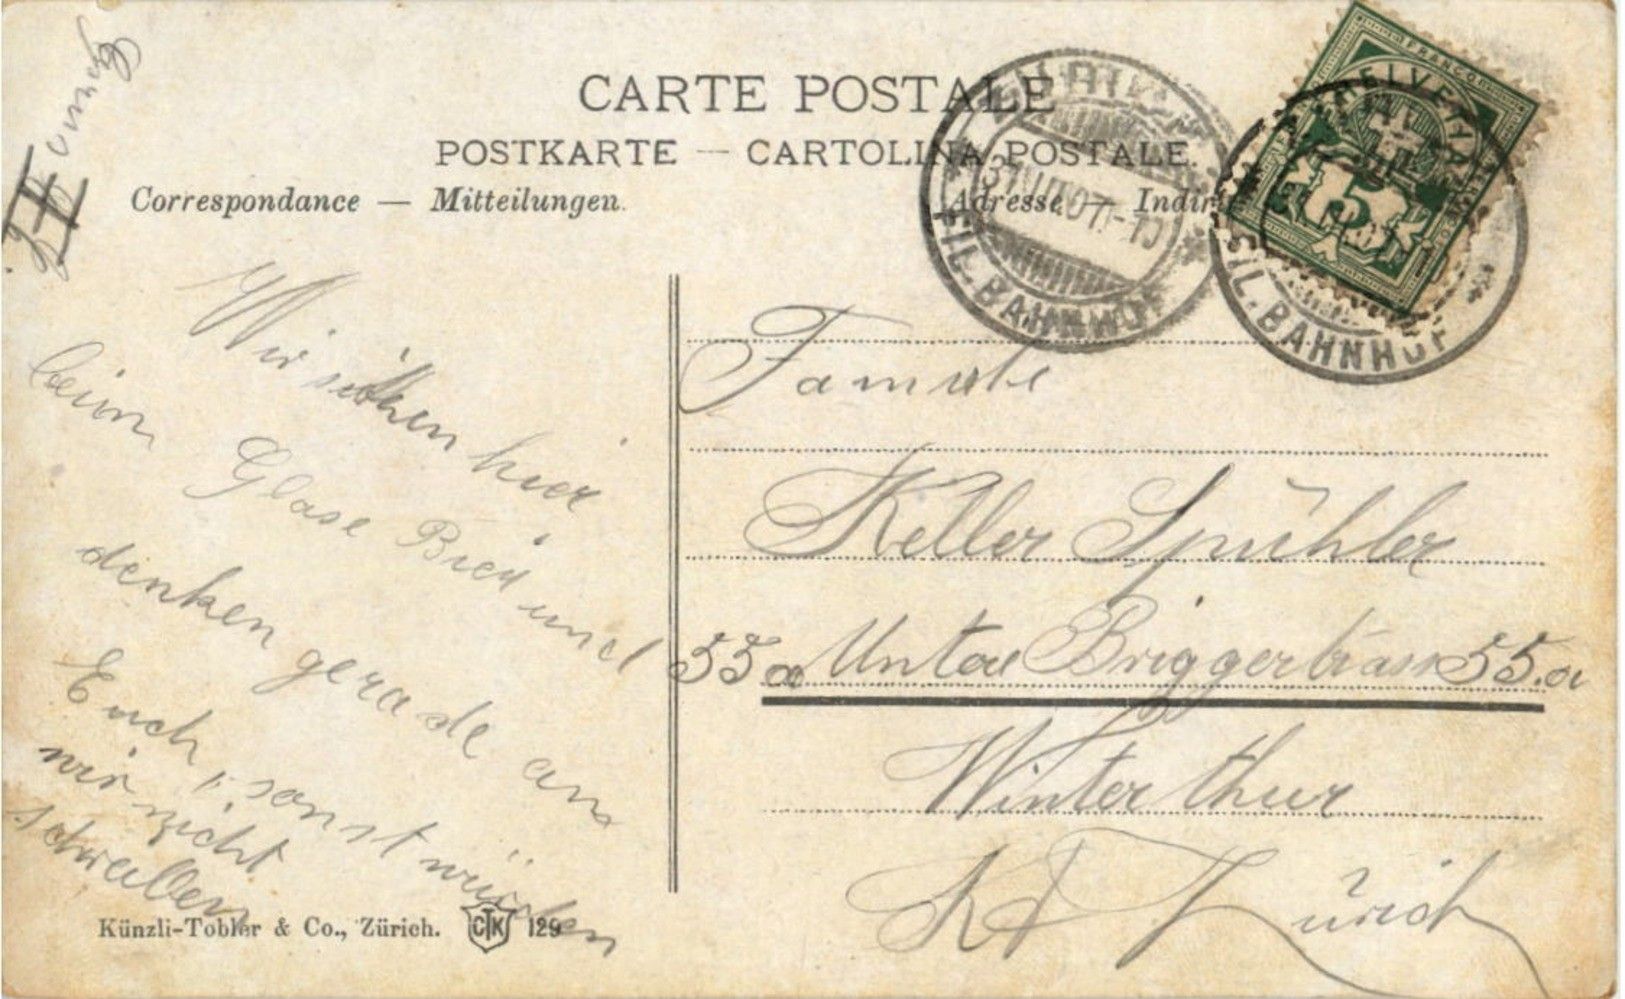 CARTE POSTALE
POSTKARTE — CARTOLINA POSTALE.
Correspondance — Mitteilungen.
Adresse — Indir
ZÜRICH
31.VII.07.-10
FIL.BAHNHOF
HELVETIA
FRANCO
5
FIL.BAHNHOF
Wir sitzen hier
beim Glase Bier und
denken gerade an
Euch, sonst würden
wir nicht
schreiben
Familie
Keller Spühler
55a Untere Briggerstrasse 55.a
Winterthur
Kt Zürich
Künzli-Tobler & Co., Zürich. CTK 129